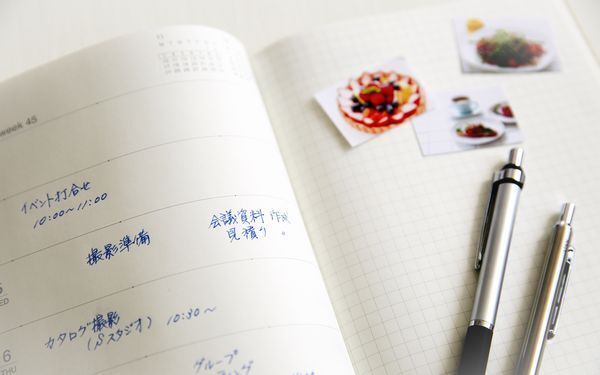 11
week 45
イベント打合せ
10:00〜11:00
会議資料作成
見積り。
撮影準備
WED
6
カタログ撮影
(Sスタジオ) 10:30〜
グループ